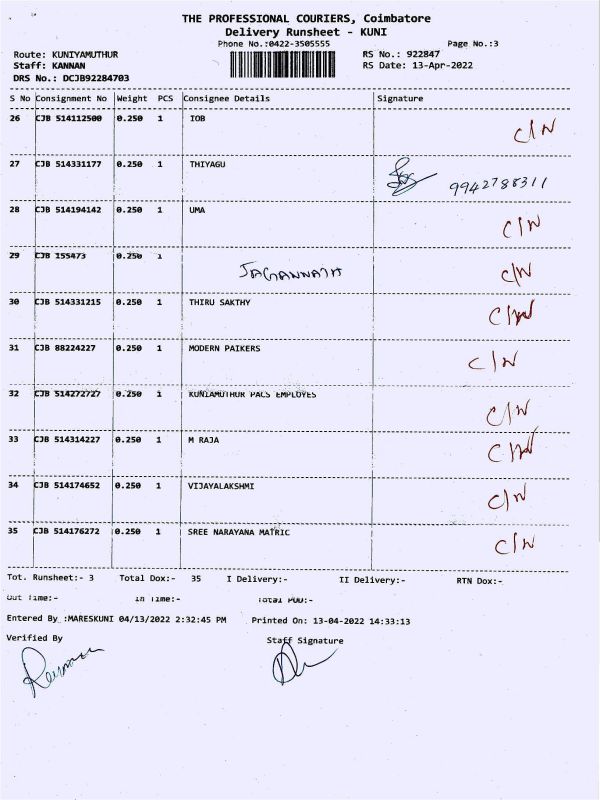 THE PROFESSIONAL COURIERS, Coimbatore
Delivery Runsheet - KUNI
Phone No.:0422-3505555 Page No.:3
Route: KUNIYAMUTHUR RS No.: 922847
Staff: KANNAN RS Date: 13-Apr-2022
DRS No.: DCJB92284703
S No Consignment No Weight PCS Consignee Details Signature
26 CJB 514112500 0.250 1 IOB C/N
27 CJB 514331177 0.250 1 THIYAGU 9942788311
28 CJB 514194142 0.250 1 UMA C/N
29 CJB 155473 0.250 1 JAGANNATH C/N
30 CJB 514331215 0.250 1 THIRU SAKTHY C/N
31 CJB 88224227 0.250 1 MODERN PAIKERS C/N
32 CJB 514272727 0.250 1 KUNIAMUTHUR PACS EMPLOYES C/N
33 CJB 514314227 0.250 1 M RAJA C/N
34 CJB 514174652 0.250 1 VIJAYALAKSHMI C/N
35 CJB 514176272 0.250 1 SREE NARAYANA MATRIC C/N
Tot. Runsheet:- 3 Total Dox:- 35 I Delivery:- II Delivery:- RTN Dox:-
Out Time:- In Time:- Total POD:-
Entered By :MARESKUNI 04/13/2022 2:32:45 PM Printed On: 13-04-2022 14:33:13
Verified By Staff Signature